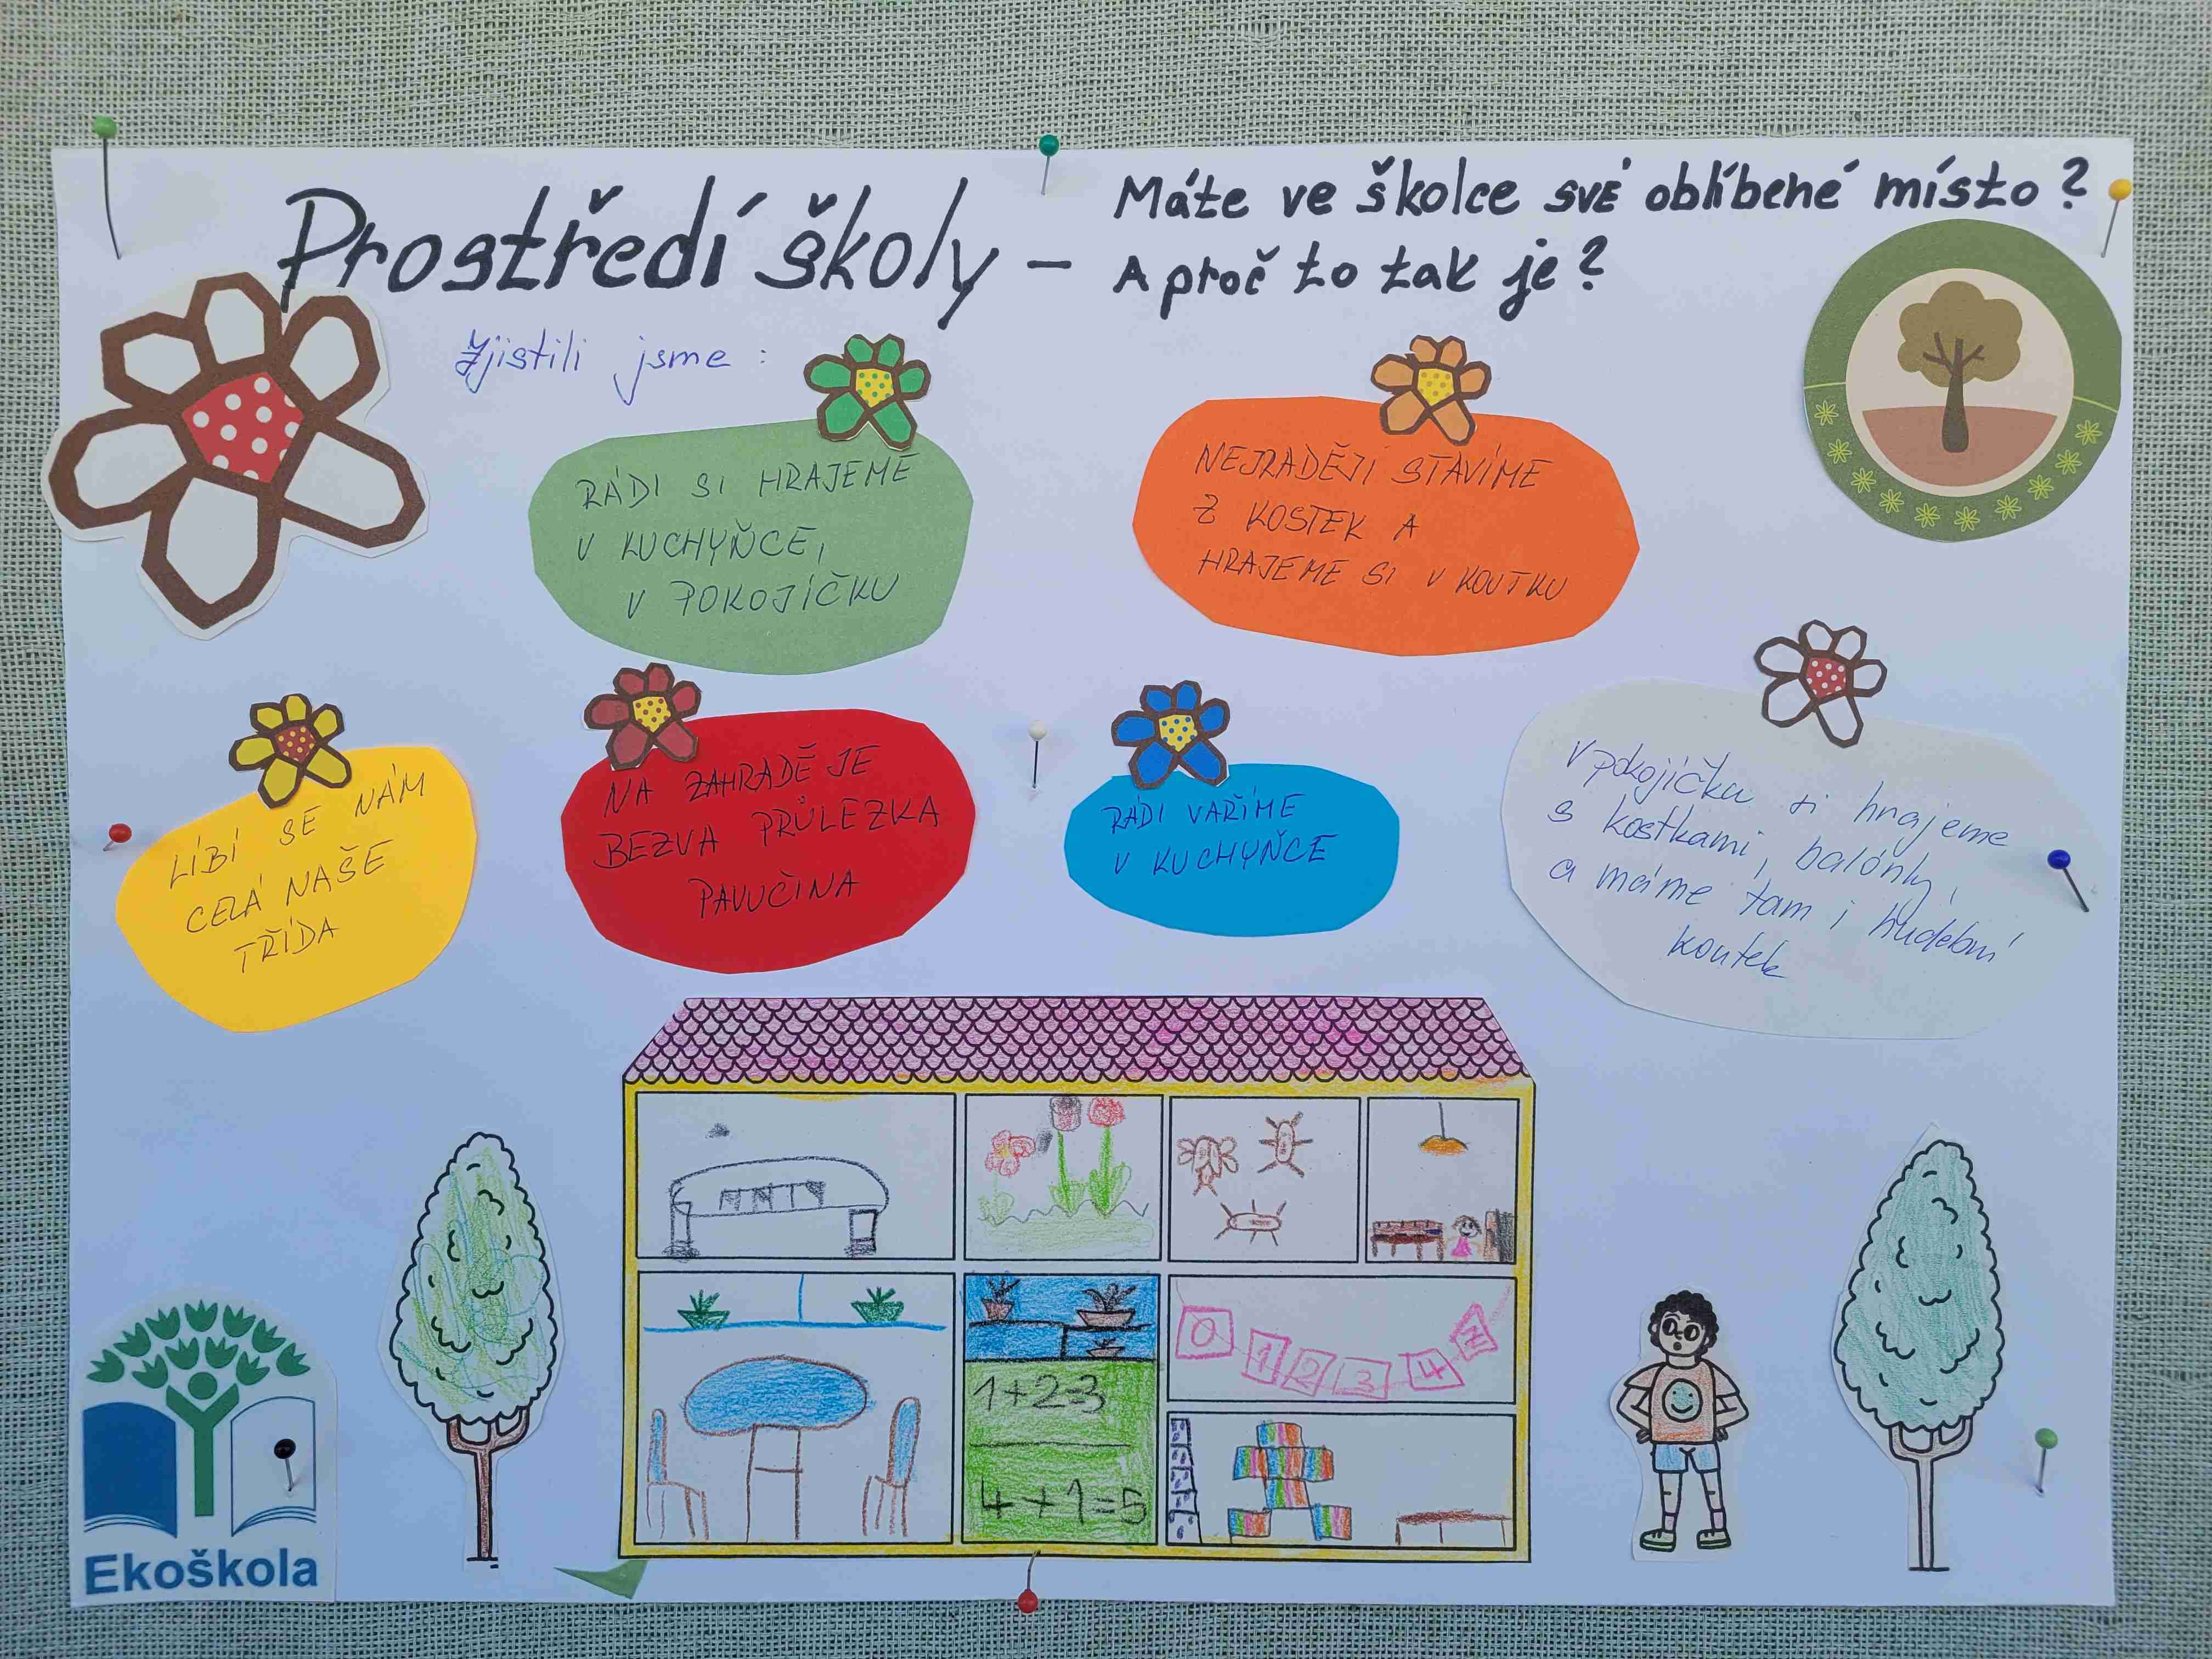 Prostředí školy –
Máte ve školce své oblíbené místo?
A proč to tak je?
Zjistili jsme:
RÁDI SI HRAJEME
V KUCHYŇCE,
V POKOJÍČKU
NEJRADĚJI STAVÍME
Z KOSTEK A
HRAJEME SI V KOUTKU
LÍBÍ SE NÁM
CELÁ NAŠE
TŘÍDA
NA ZAHRADĚ JE
BEZVA PRŮLEZKA
PAVUČINA
RÁDI VAŘÍME
V KUCHYŇCE
V pokojíčku si hrajeme
s kostkami, balónky,
a máme tam i hudební
koutek
0 1 2 3 4 Z
1+2=3
4+1=5
Ekoškola